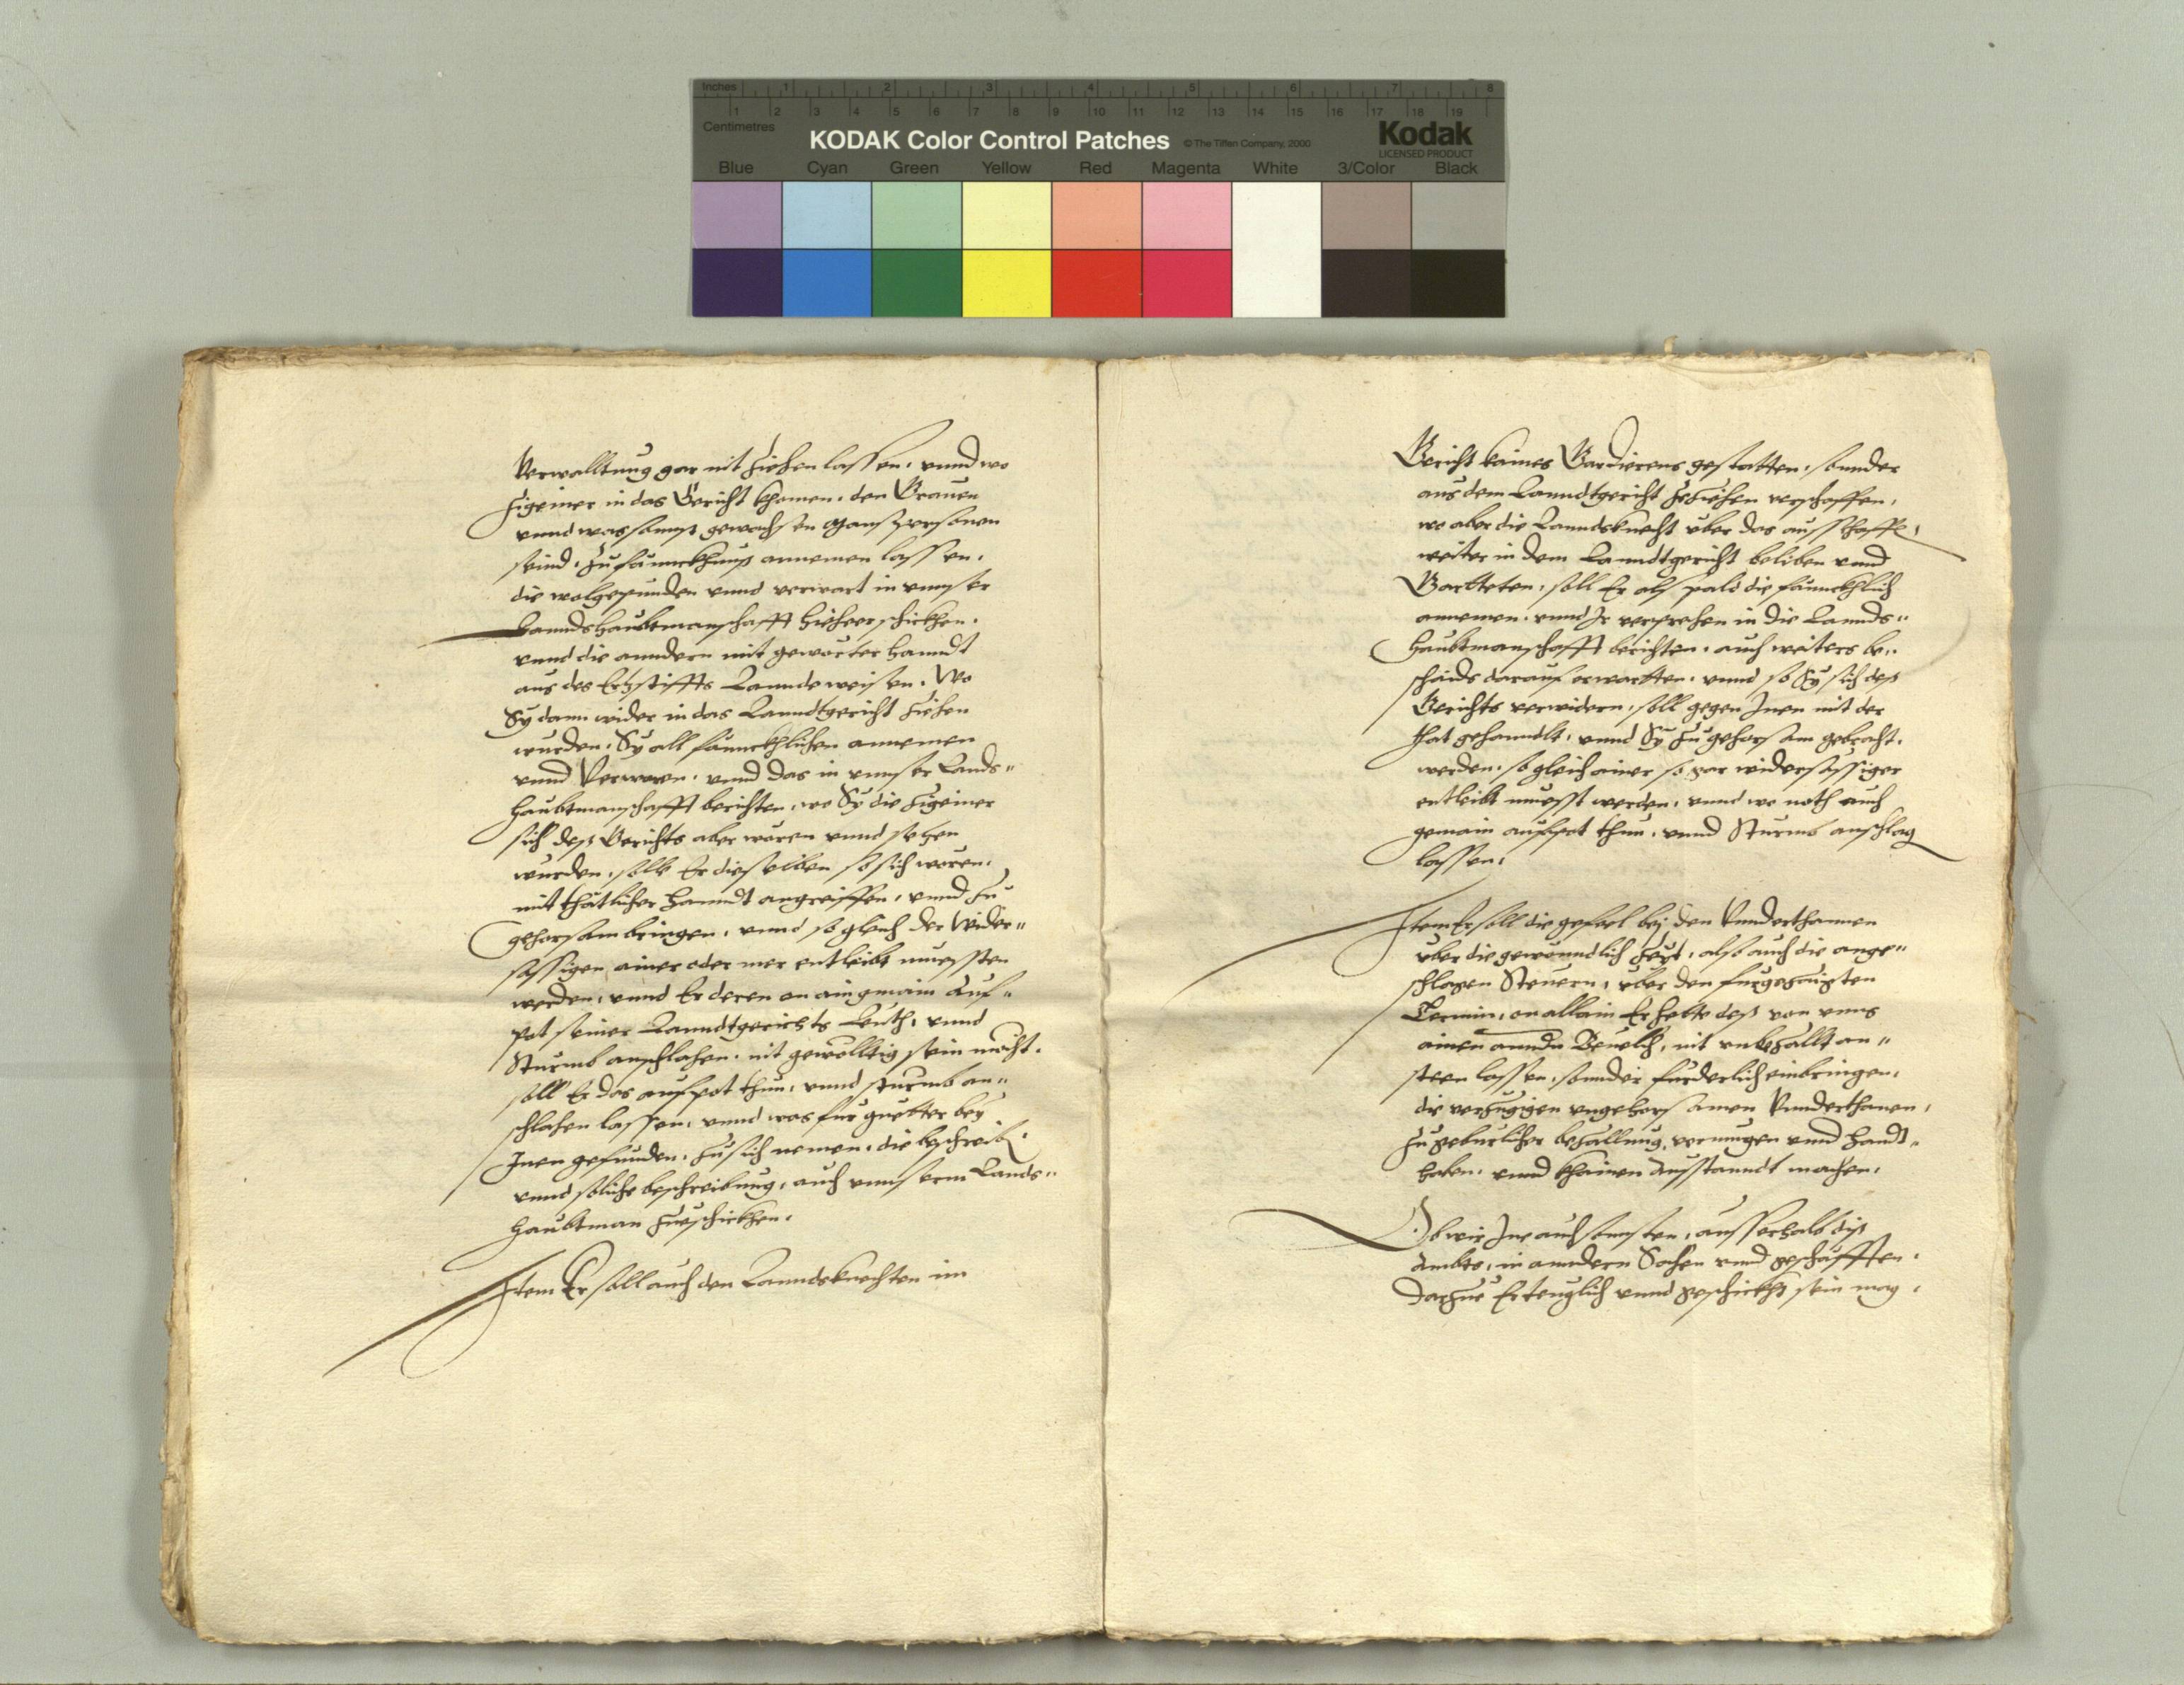 Inches 1 2 3 4 5 6 7 8
1 2 3 4 5 6 7 8 9 10 11 12 13 14 15 16 17 18 19
Centimetres
KODAK Color Control Patches © The Tiffen Company, 2000 Kodak
LICENSED PRODUCT
Blue Cyan Green Yellow Red Magenta White 3/Color Black
Verwalltung gar nit ziehen lassen. vnnd wo
Zigeiner in das Gericht khomen. den Grauen
vnnd was sonnst gewachsen Mansspersonen
seind. zu fännckhnus annemen lassen.
die wolgepunden vnnd verwart in vnnser
Hanndshaubtmanschafft hieheer schickhen.
vnnd die anndern mit gewörter Hanndt
aus des Ertzstiffts Lannde weisen. Wo
Sy dann wider in das Lanndtgericht ziehen
wurden. Sy all fännckhlichen annemen
vnnd Verwaren. vnnd das in vnnser Lands„
haubtmanschafft berichten, wo Sy die Zigeiner
sich dess Gerichts aber wören vnnd setzen
wurden, solle Er dieselben so sich wören.
mit thätlicher Hanndt angreiffen, vnnd zu
gehorsam bringen, vnnd so gleich der Wider„
sässigen ainer oder mer entleibt muessten
werden, vnnd Er deren on ain gmain Auf„
pot seiner Lanndtgerichts Leuth, vnnd
Sturmb anschlahen. nit gewölltig sein möcht.
soll Er das aufpot thun, vnnd sturmb an„
schlahen lassen, vnnd was für guetter bey
Inen gefunden, zu sich nemen, die beschreib.
vnnd soliche beschreibung, auch vnnserm Lands„
haubtman zueschickhen.
Item Er soll auch den Lanndsknechten im
Gericht kaines Gardierens gestatten, sonnder
aus dem Lanndtgericht zeziehen verschaffen,
wo aber die Lanndsknecht vber das ausschaffe,
weiter in dem Lanndtgericht beliben vnnd
Gartteten, soll Er alspald die fännckhlich
annemen. vnnd Ir verprechen in die Lannds„
haubtmanschafft berichten. auch weiters be„
schaids darauf erwartten. vnnd so Sy sich dess
Gerichts verwidern, soll gegen Inen mit der
that gehanndlt, vnnd Sy zu gehorsam gebracht.
werden. so gleich ainer so gar widersässiger
entleibt muesst werden, vnnd wo noth auch
gemain aufpot thun, vnnd Sturmb anschlag
lassen.
Item Er soll die gefäel bej den Vnnderthannen
vber die gewonndlich Zeyt, also auch die ange„
schlagen Steuern, vber den furgezaigten
Termin, on allain Er hette dess von vnns
ainen anndn Beuelch, nit vnbezallt an„
steen lassen, sonnder fürderlich einbringen,
die verzugigen vngehorsamen Vnnderthanen,
zu gebürlicher bezallung, vermugen vnnd Handt„
haben. vnnd khainen Ausstanndt machen.
Ob wir Ine auch sonnsten, ausserhalb diss
Ambts, in anndern Sachen vnnd geschäfften.
Darzue Er teuglich vnnd geschickht sein mag,